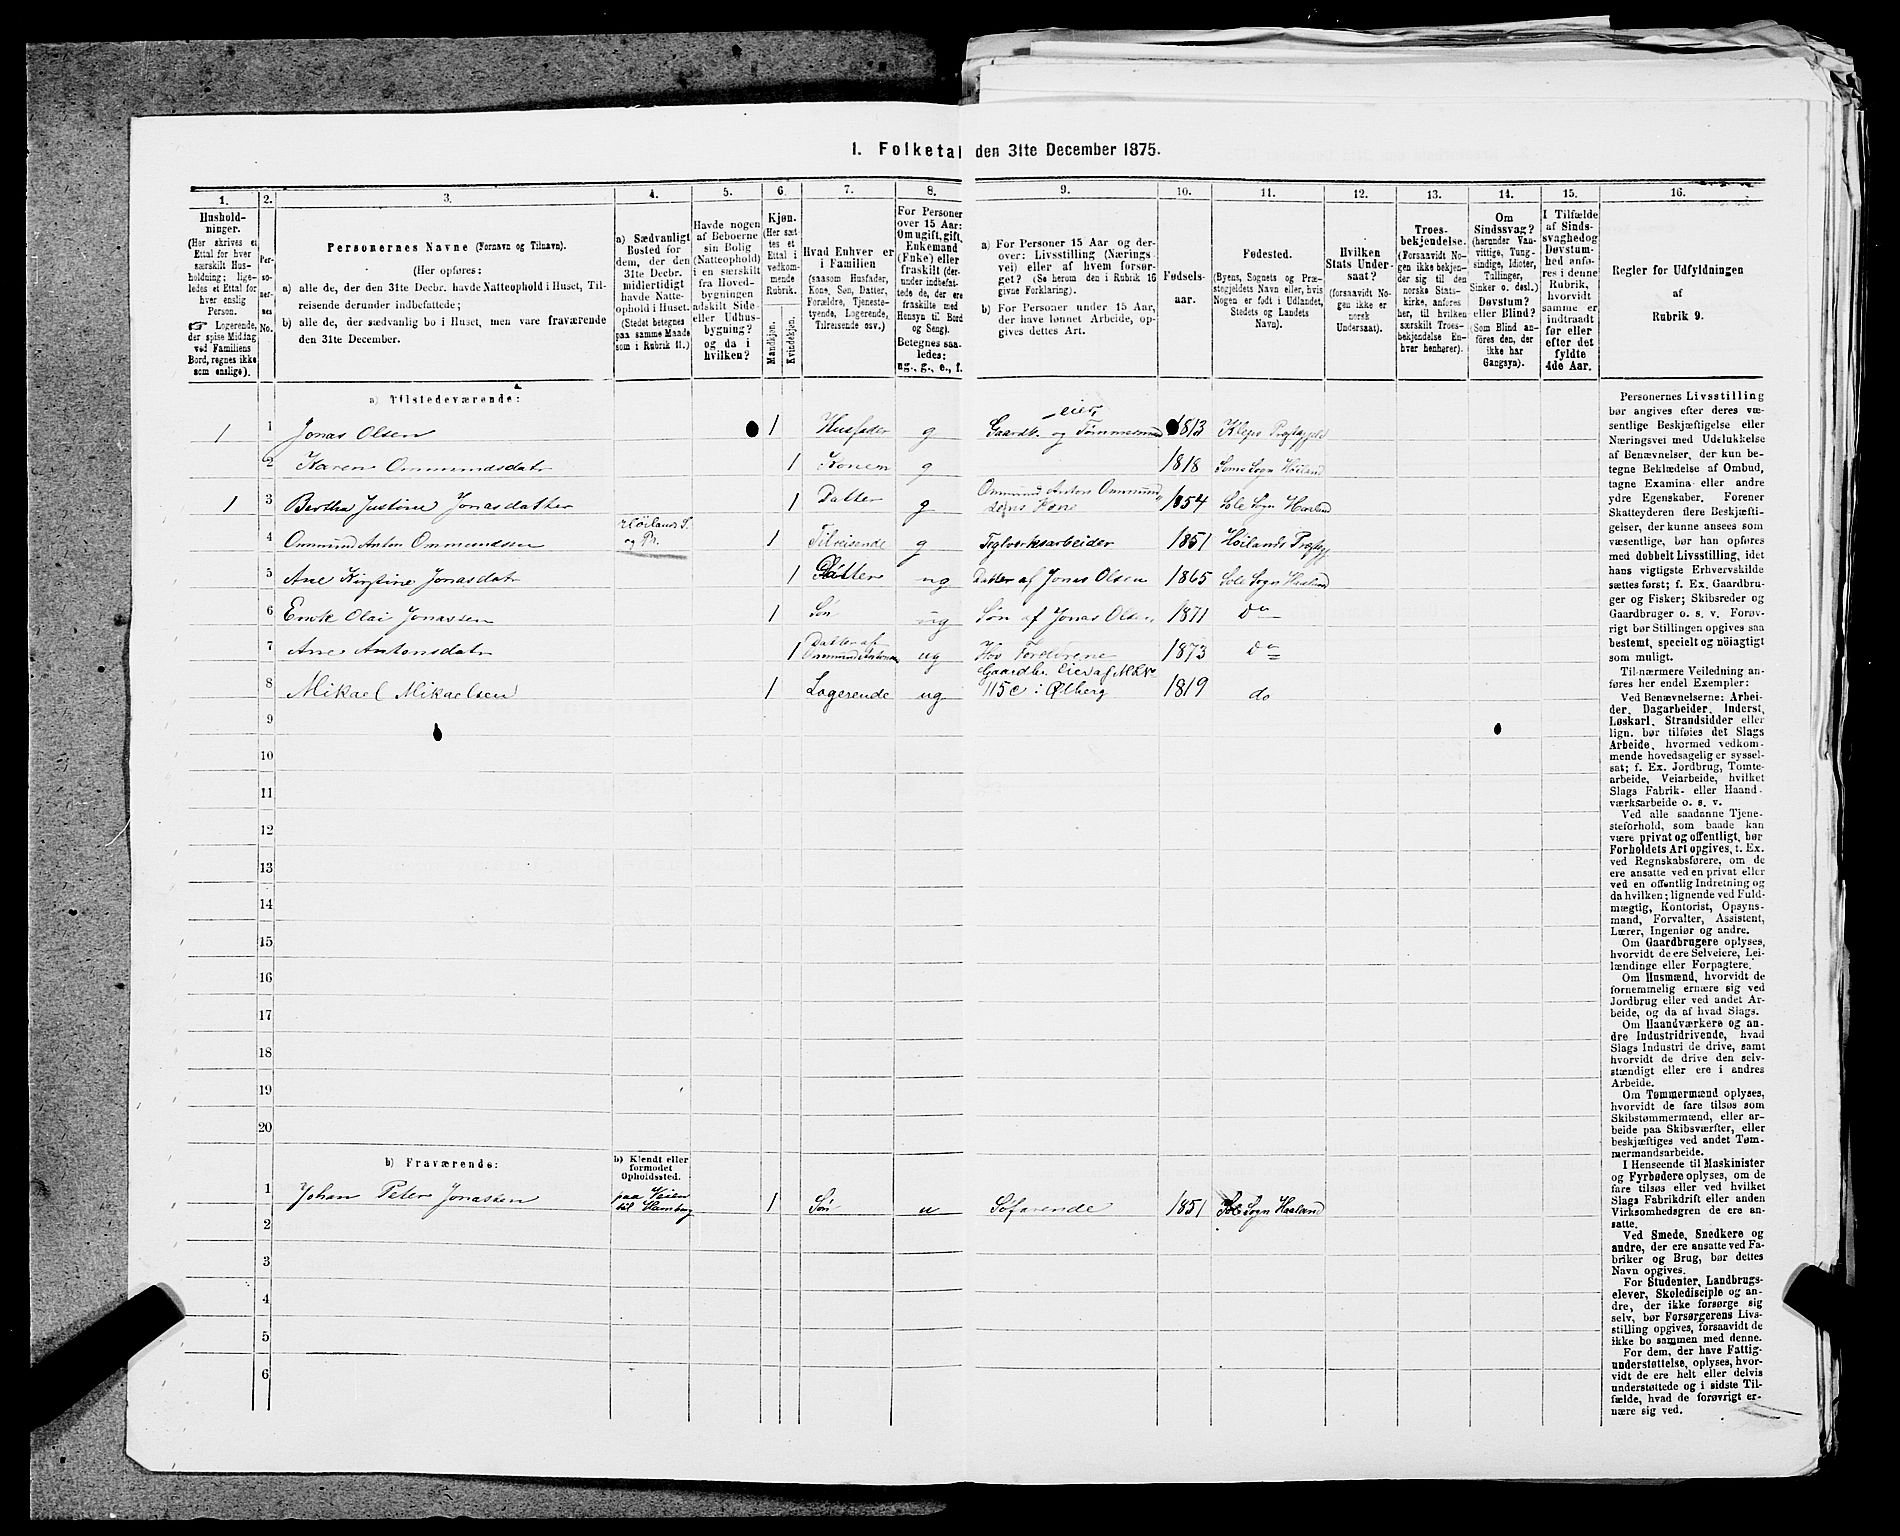 1. Folketal den 31te December 1875.
1. 2. 3. 4. 5. 6. 7. 8. 9. 10. 11. 12. 13. 14. 15. 16.
Hushold-
ninger.
(Her skrives et
Ettal for hver
særskilt Hus-
holdning; lige-
ledes et Ettal for
hver enslig
Person.
☞ Logerende,
der spise Middag
ved Familiens
Bord, regnes ikke
som enslige).
Per-
so-
ner-
nes
No.
Personernes Navne (Fornavn og Tilnavn).
(Her opføres:
a) alle de, der den 31te Decbr. havde Natteophold i Huset, Til-
reisende derunder indbefattede;
b) alle de, der sædvanlig bo i Huset, men vare fraværende
den 31te December.
a) Sædvanligt
Bosted for
dem, der den
31te Decbr.
midlertidigt
havde Natte-
ophold i Huset.
(Stedet betegnes
paa samme Maade
som i Rubrik 11.)
Havde nogen
af Beboerne
sin Bolig
(Natteophold)
i en særskilt
fra Hoved-
bygningen
adskilt Side-
eller Udhus-
bygning?
og da i
hvilken?
Kjøn.
(Her sæt-
tes et
Ettal i
vedkom-
mende
Rubrik.
Mandkjøn.
Kvindekjøn.
Hvad Enhver er
i Familien
(saasom Husfader,
Kone, Søn, Datter,
Forældre, Tjeneste-
tyende, Logerende,
Tilreisende osv.)
For Personer
over 15 Aar:
Om ugift, gift,
Enkemand
(Enke) eller
fraskilt (der-
under indbefat-
tede de, der ere
fraskilte med
Hensyn til Bord
og Seng).
Betegnes saa-
ledes:
ug., g., e., f.
a) For Personer 15 Aar og der-
over: Livsstilling (Nærings-
vei) eller af hvem forsør-
get? (Se herom den i Rubrik 16
givne Forklaring).
b) For Personer under 15 Aar,
der have lønnet Arbeide, op-
gives dettes Art.
Fødsels-
aar.
Fødested.
(Byens, Sognets og Præ-
stegjeldets Navn eller, hvis
Nogen er født i Udlandet,
Stedets og Landets
Navn).
Hvilken
Stats Under-
saat?
(forsaavidt No-
gen ikke er
norsk
Undersaat).
Troes-
bekjendelse.
(Forsaavidt No-
gen ikke bekjen-
der sig til den
norske Stats-
kirke, anføres
her, til hvilken
særskilt Troes-
bekjendelse En-
hver henhører).
Om
Sindssvag?
(herunder Van-
vittige, Tung-
sindige, Idioter,
Tullinger,
Sinker o. desl.)
Døvstum?
eller Blind?
(Som Blind an-
føres den, der
ikke har
Gangsyn).
I Tilfælde
af Sinds-
svaghed og
Døvstum-
hed anfø-
res i denne
Rubrik,
hvorvidt
samme er
indtraadt
før eller
efter det
fyldte
4de Aar.
Regler for Udfyldningen
af
Rubrik 9.
a) Tilstedeværende:
1 1 Jonas Olsen 1 Husfader g Gaardbr. -eier, og Tømmermand 1813 Klepp Præstegjeld
2 Karen Ommundsdatr 1 Konen g 1818 Some Sogn Høiland
1 3 Bertha Justine Jonasdatter 1 Datter g Ommund Anton Ommund
dsens Kone 1854 Sole Sogn Haaland
4 Ommund Anton Ommundsen Høilands S.
og Pr. 1 Tilreisende g Teglverksarbeider 1851 Høilands Præstegj
5 Ane Kirstine Jonasdatr 1 Datter ug Datter af Jonas Olsen 1865 Sole Sogn Haaland
6 Enok Olai Jonassen 1 Søn ug Søn af Jonas Olsen 1871 Do
7 Ane Antonsdatr 1 Datter af
Ommund Antonsen ug Hos Forældrene 1873 Do
8 Mikael Mikaelsen 1 Logerende ug Gaardbr. Eier af MNNo
115c i Ølberg 1819 do
9
10
11
12
13
14
15
16
17
18
19
20
b) Fraværende:
b) Kjendt eller
formodet
Opholdssted.
1 Johan Peter Jonassen paa Veien
til Hamborg 1 Søn u Søfarende 1851 Sole Sogn Haaland
2
3
4
5
6
Personernes Livsstilling
bør angives efter deres væ-
sentlige Beskjæftigelse eller
Næringsvei med Udelukkelse
af Benævnelser, der kun be-
tegne Beklædelse af Ombud,
tagne Examina eller andre
ydre Egenskaber. Forener
Skatteyderen flere Beskjæfti-
gelser, der kunne ansees som
væsentlige, bør han opføres
med dobbelt Livsstilling, idet
hans vigtigste Erhvervskilde
sættes først; f. Ex. Gaardbru-
ger og Fisker; Skibsreder og
Gaardbruger o. s. v. Forøv-
rigt bør Stillingen opgives saa
bestemt, specielt og nöiagtigt
som muligt.
Til nærmere Veiledning an-
føres her endel Exempler:
Ved Benævnelserne: Arbei-
der, Dagarbeider, Inderst,
Løskarl, Strandsidder eller
lign. bør tilføies det Slags
Arbeide, hvormed vedkom-
mende hovedsagelig er syssel-
sat; f. Ex. Jordbrug, Tomte-
arbeide, Veiarbeide, hvilket
Slags Fabrik- eller Haand-
værksarbeide o. s. v.
Ved alle saadanne Tjene-
steforhold, som baade kan
være privat og offentligt, bør
Forholdets Art opgives, t. Ex.
ved Regnskabsførere, om de
ere ansatte ved en privat eller
ved en offentlig Indretning og
da hvilken; lignende ved Fuld-
mægtig, Kontorist, Opsyns-
mand, Forvalter, Assistent,
Lærer, Ingeniør og andre.
Om Gaardbrugere oplyses,
hvorvidt de ere Selveiere, Lei-
lændinge eller Forpagtere.
Om Husmænd, hvorvidt de
fornemmelig ernære sig ved
Jordbrug eller ved andet Ar-
beide, og da af hvad Slags.
Om Haandværkere og an-
dre Industridrivende, hvad
Slags Industri de drive, samt
hvorvidt de drive den selv-
stændigt eller ere i andres
Arbeide.
Om Tømmermænd oplyses,
hvorvidt de fare tilsøs som
Skibstømmermænd, eller ar-
beide paa Skibsværfter, eller
beskjæftiges ved andet Tøm-
mermandsarbeide.
I Henseende til Maskinister
og Fyrbødere oplyses, om de
fare tilsøs eller ved hvilket
Slags Fabrikdrift eller anden
Virksomhedsgren de ere an-
satte.
Ved Smede, Snedkere og
andre, der ere ansatte ved Fa-
briker og Brug, bør dettes
Navn opgives.
For Studenter, Landbrugs-
elever, Skoledisciple og an-
dre, der ikke forsørge sig
selv, bør Forsørgerens Livs-
stilling opgives, forsaavidt de
ikke bo sammen med denne.
For dem, der have Fattig-
understøttelse, oplyses, hvor-
vidt de ere helt eller delvis
understøttede og i sidste Til-
fælde, hvad de forøvrigt er-
nære sig ved.